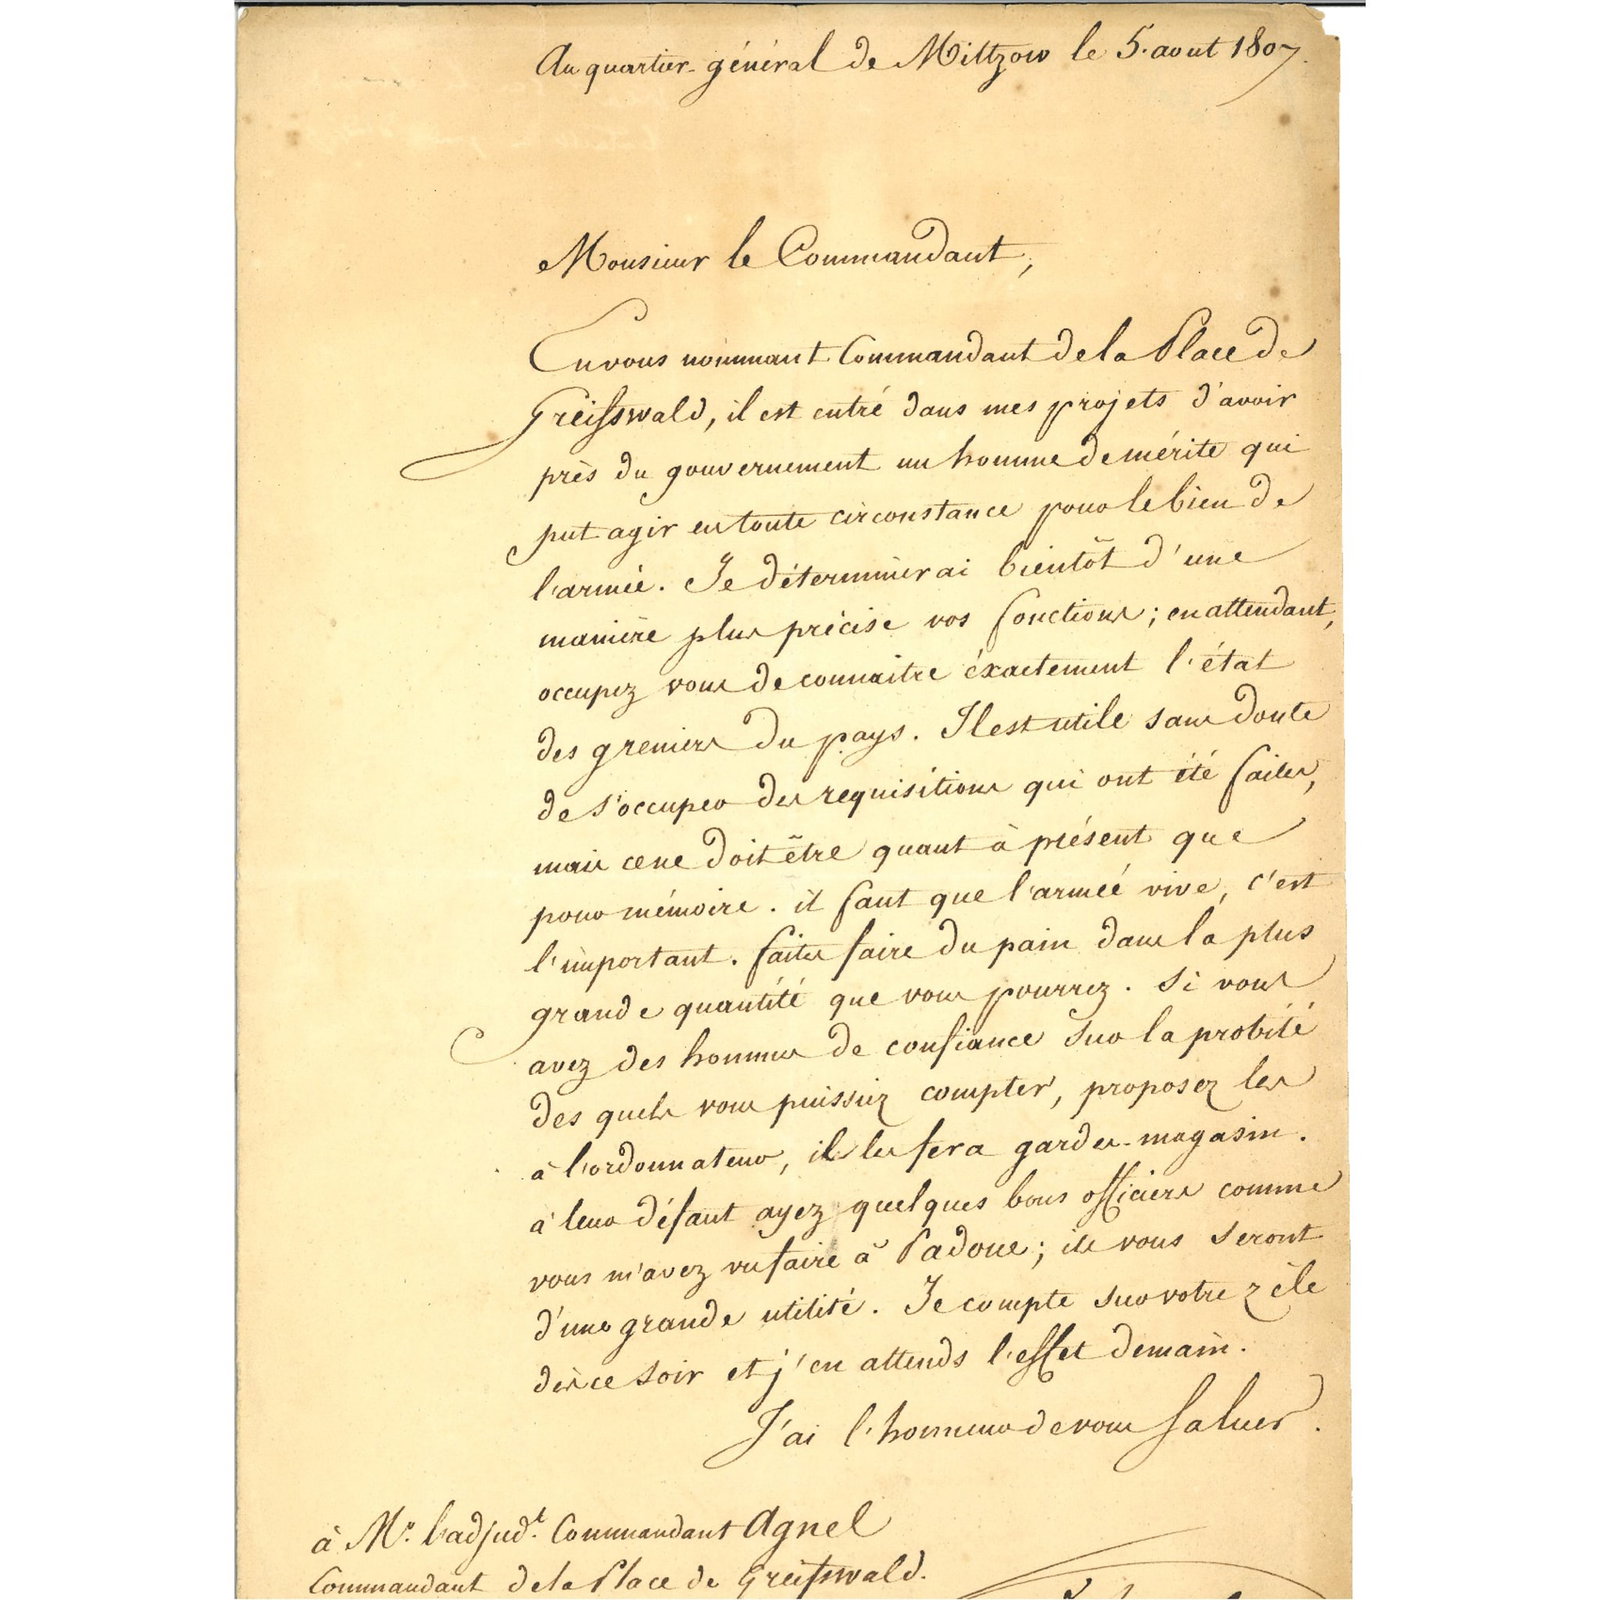 Au quartier-général de Miltzow le 5. aout 1807.
Monsieur le Commandant,
En vous nommant Commandant de la Place de
Greifswald, il est entré dans mes projets d'avoir
près du gouvernement un homme de mérite qui
put agir en toute circonstance pour le bien de
l'armée. Je déterminerai bientôt d'une
manière plus précise vos fonctions; en attendant,
occupez vous de connaitre éxactement l'état
des greniers du pays. Il est utile sans doute
de s'occuper des requisitions qui ont été faites,
mais ce ne doit être quant à présent que
pour mémoire. il faut que l'armée vive, c'est
l'important. faites faire du pain dans la plus
grande quantité que vous pourrez. Si vous
avez des hommes de confiance sur la probité
des quels vous puissiez compter, proposez les
à l'ordonnateur, il les fera gardes-magasin.
à leur défaut ayez quelques bons officiers comme
vous m'avez vu faire à Padoue; ils vous seront
d'une grande utilité. Je compte sur votre zèle
dès ce soir et j'en attends l'effet demain.
J'ai l'honneur de vous saluer.
à Mr. l'adjudt. Commandant Agnel
Commandant de la Place de Greifswald.